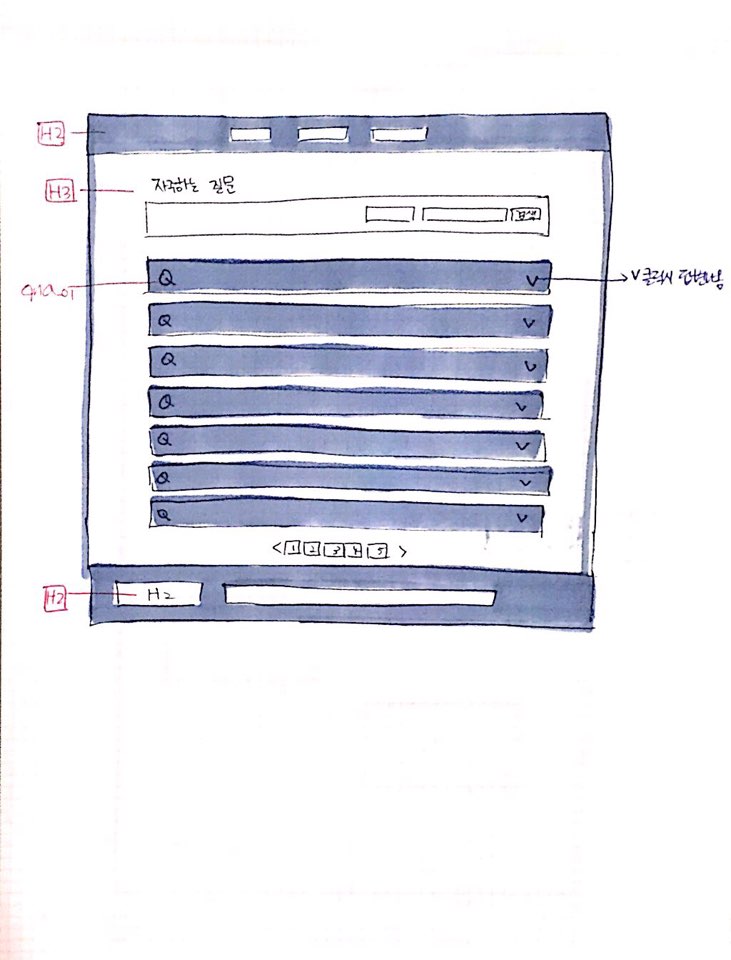 H2
H3 자주하는 질문
검색
Q V V클릭시 답변나옴
Q V
Q V
Q V
Q V
Q V
Q V
< 1 2 3 4 5 >
H2 H2